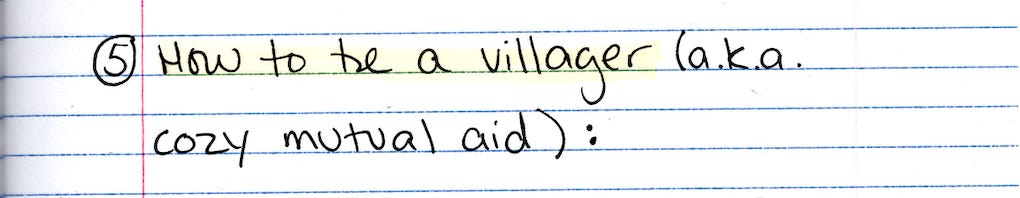 ⑤ How to be a villager (a.k.a.
cozy mutual aid):